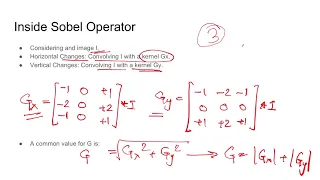 Inside Sobel Operator
3
● Considering and image I.
● Horizontal Changes: Convolving I with a kernel Gx.
● Vertical Changes: Convolving I with a kernel Gy.
Gx = [-1 0 +1
-2 0 +2
-1 0 +1] * I
Gy = [-1 -2 -1
0 0 0
+1 +2 +1] * I
● A common value for G is:
G = √Gx² + Gy² → G = |Gx| + |Gy|